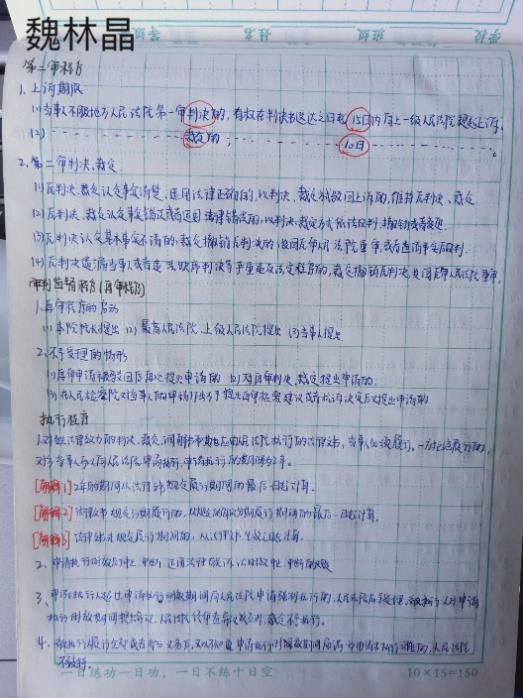 学校 班级 姓名
魏林晶
第二审程序
1、上诉期限
(1)当事人不服地方人民法院第一审判决的,有权在判决书送达之日起15日内向上一级人民法院提起上诉。
(2) 裁定的; 10日。
2、第二审判决、裁定
(1)原判决、裁定认定事实清楚,适用法律正确的,以判决、裁定方式驳回上诉,维持原判决、裁定
(2)原判决、裁定认定事实错误或者适用法律错误的,以判决、裁定方式依法改判、撤销或者变更
(3)原判决认定基本事实不清的,裁定撤销原判决,发回原审人民法院重审,或者查清事实后改判
(4)原判决遗漏当事人或者违法缺席判决等严重违反法定程序的,裁定撤销原判决,发回原审人民法院重审。
审判监督程序(再审程序)
1、再审程序的启动
(1)本院院长提出 (2)最高人民法院、上级人民法院提出 (3)当事人提出
2、不予受理的情形
(1)再审申请被驳回后再次提出申请的 (2)对再审判决、裁定提出申请的
(3)在人民检察院对当事人的申请作出不予提出再审检察建议或者抗诉决定后又提出申请的
执行程序
1、对发生法律效力的判决、裁定、调解书和其他应由人民法院执行的法律文书,当事人必须履行。一方拒绝履行的,
对方当事人可以向人民法院申请执行,申请执行的期间为2年。
[解释1]2年的期间从法律文书规定履行期间的最后一日起计算。
[解释2]法律文书规定分期履行的,从规定的每次履行期间的最后一日起计算。
[解释3]法律文书未规定履行期间的,从法律文书生效之日起计算。
2、申请执行时效的中止、中断,适用法律有关诉讼时效中止、中断的规定
3、申请执行人超过申请执行时效期间向人民法院申请强制执行的,人民法院应予受理,被执行人对申请
执行时效期间提出异议,人民法院经审查异议成立的,裁定不予执行。
4、被执行人履行全部或者部分义务后,又以不知道申请执行时效期间届满为由请求执行回转的,人民法院
不予支持。
一日练功一日功,一日不练十日空
10×15=150